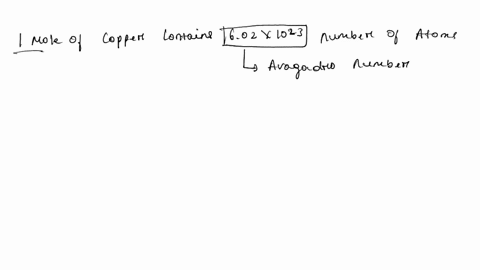 1 Mole of Copper Contains 6.02 × 10²³ Number of Atoms
↳ Avagadro Number